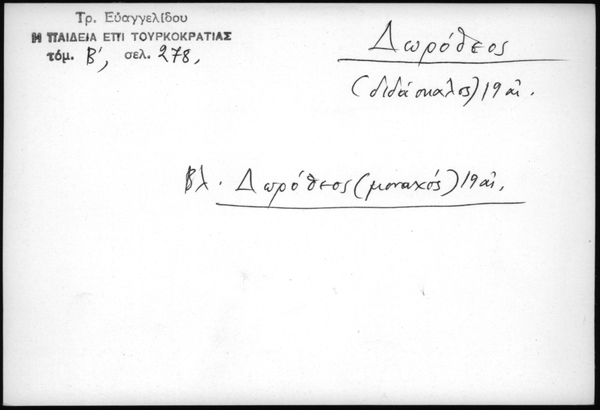 Τρ. Εὐαγγελίδου
Η ΠΑΙΔΕΙΑ ΕΠΙ ΤΟΥΡΚΟΚΡΑΤΙΑΣ
τόμ. Β', σελ. 278,
Δωρόθεος
(διδάσκαλος) 19 αἰ.
Βλ. Δωρόθεος (μοναχός) 19 αἰ.